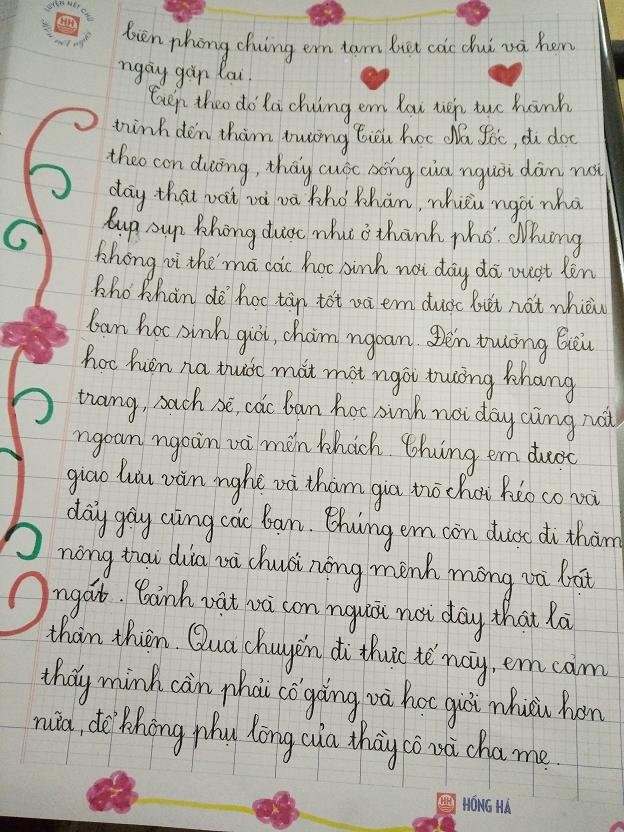 LUYỆN NÉT CHỮ
HH
RÈN NẾT NGƯỜI
biên phòng chúng em tạm biệt các chú và hẹn
ngày gặp lại.
Tiếp theo đó là chúng em lại tiếp tục hành
trình đến thăm trường Tiểu học Na Lốc, đi dọc
theo con đường, thấy cuộc sống của người dân nơi
đây thật vất vả và khó khăn, nhiều ngôi nhà
lụp sụp không được như ở thành phố. Nhưng
không vì thế mà các học sinh nơi đây đã vượt lên
khó khăn để học tập tốt và em được biết rất nhiều
bạn học sinh giỏi, chăm ngoan. Đến trường Tiểu
học hiện ra trước mắt một ngôi trường khang
trang, sạch sẽ, các bạn học sinh nơi đây cũng rất
ngoan ngoãn và mến khách. Chúng em được
giao lưu văn nghệ và tham gia trò chơi kéo co và
đẩy gậy cùng các bạn. Chúng em còn được đi thăm
nông trại dứa và chuối rộng mênh mông và bát
ngát. Cảnh vật và con người nơi đây thật là
thân thiện. Qua chuyến đi thực tế này, em cảm
thấy mình cần phải cố gắng và học giỏi nhiều hơn
nữa, để không phụ lòng của thầy cô và cha mẹ.
HH HỒNG HÀ